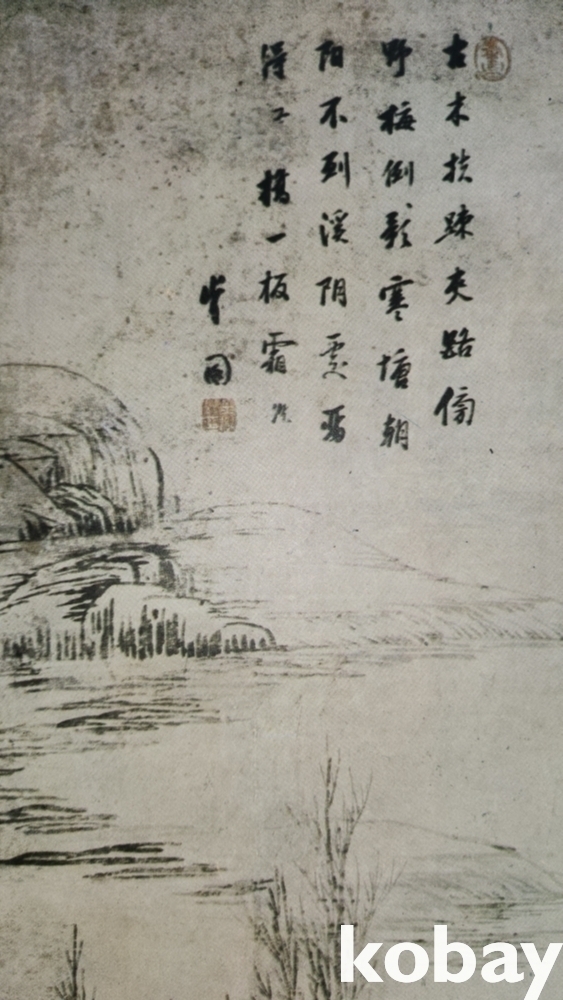 古木扶疎夾路傍
野梅倒影寒塘朝
阳不到溪阴處留
得橋一板霜
kobay